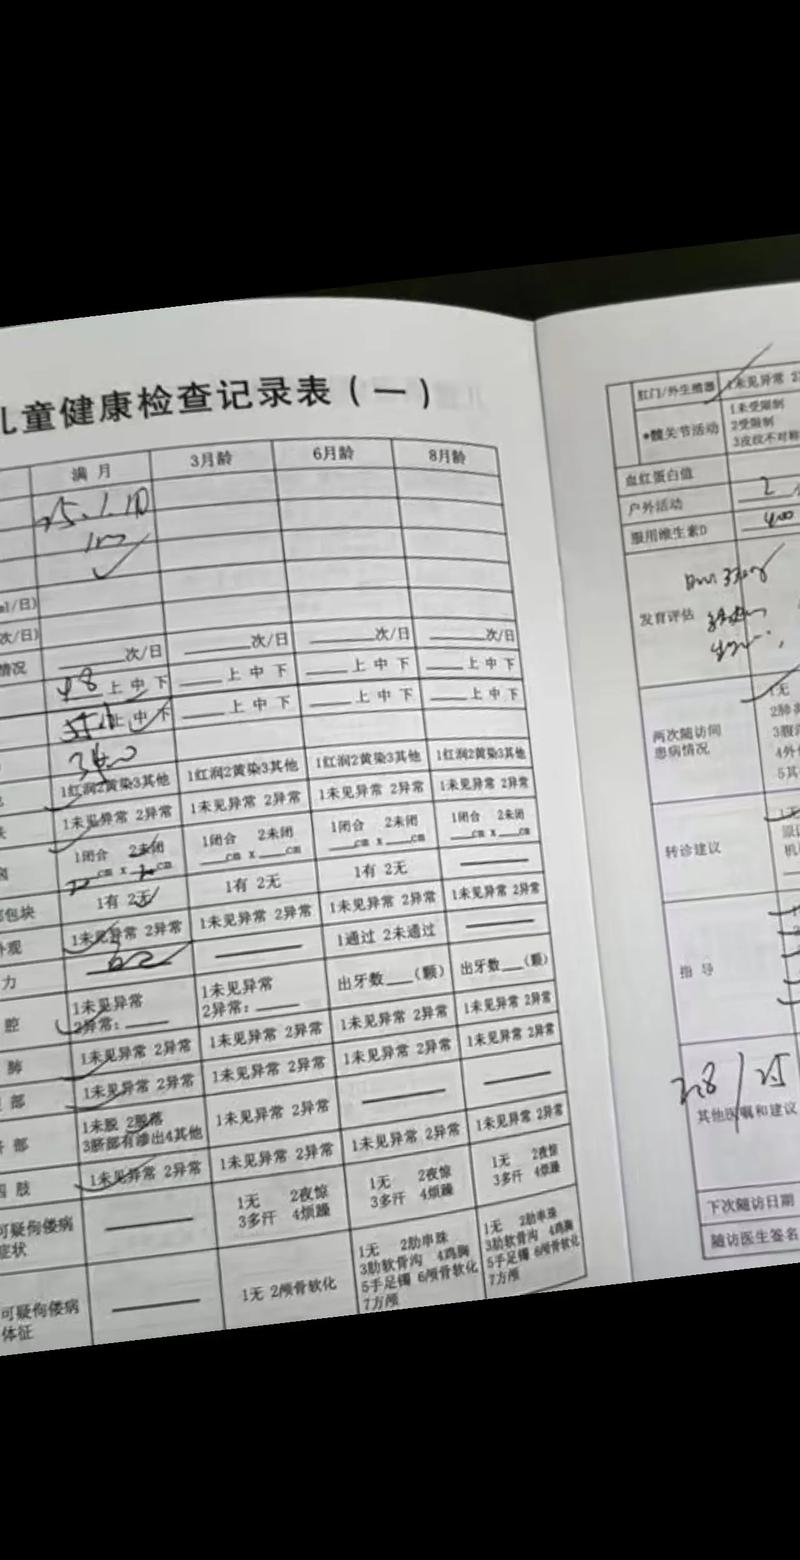 儿童健康检查记录表（一）
满 月 3月龄 6月龄 8月龄
25.1.10
ml/日)
次/日)
情况 ____次/日 ____次/日 ____次/日 ____次/日
4.8 上 中 下 ____上 中 下 ____上 中 下 ____上 中 下
上 中 下 ____上 中 下 ____上 中 下 ____上 中 下
1红润2黄染3其他 1红润2黄染3其他 1红润2黄染3其他 1红润2黄染3其他
1未见异常 2异常 1未见异常 2异常 1未见异常 2异常 1未见异常 2异常
1闭合 2未闭 1闭合 2未闭 1闭合 2未闭 1闭合 2未闭
cm x cm ____cm x ____cm ____cm x ____cm ____cm x ____cm
部包块 1有 2无 1有 2无 1有 2无
外观 1未见异常 2异常 1未见异常 2异常 1未见异常 2异常 1未见异常 2异常
力 1通过 2未通过
腔 1未见异常 1未见异常 出牙数____(颗) 出牙数____(颗)
2异常：____ 2异常：____
肺 1未见异常 2异常 1未见异常 2异常 1未见异常 2异常 1未见异常 2异常
部 1未见异常 2异常 1未见异常 2异常 1未见异常 2异常 1未见异常 2异常
部 1未脱 2脱落 1未见异常 2异常
3脐部有渗出4其他
四 肢 1未见异常 2异常 1未见异常 2异常 1未见异常 2异常 1未见异常 2异常
可疑佝偻病 1无 2夜惊 1无 2夜惊 1无 2夜惊
症状 3多汗 4烦躁 3多汗 4烦躁 3多汗 4烦躁
可疑佝偻病 1无 2颅骨软化 1无 2肋串珠 1无 2肋串珠
体征 3肋软骨沟 4鸡胸 3肋软骨沟 4鸡胸
5手足镯 6颅骨软化 5手足镯 6颅骨软化
7方颅 7方颅
肛门/外生殖器 1未见异常 2
*髋关节活动 1未受限制
2受限制
3皮纹不对称
血红蛋白值
户外活动 2
服用维生素D 400
发育评估
两次随访间 1无
患病情况 2肺炎
3腹泻
4外
5其
转诊建议
原因
机
指 导
28/25
其他医嘱和建议
下次随访日期
随访医生签名